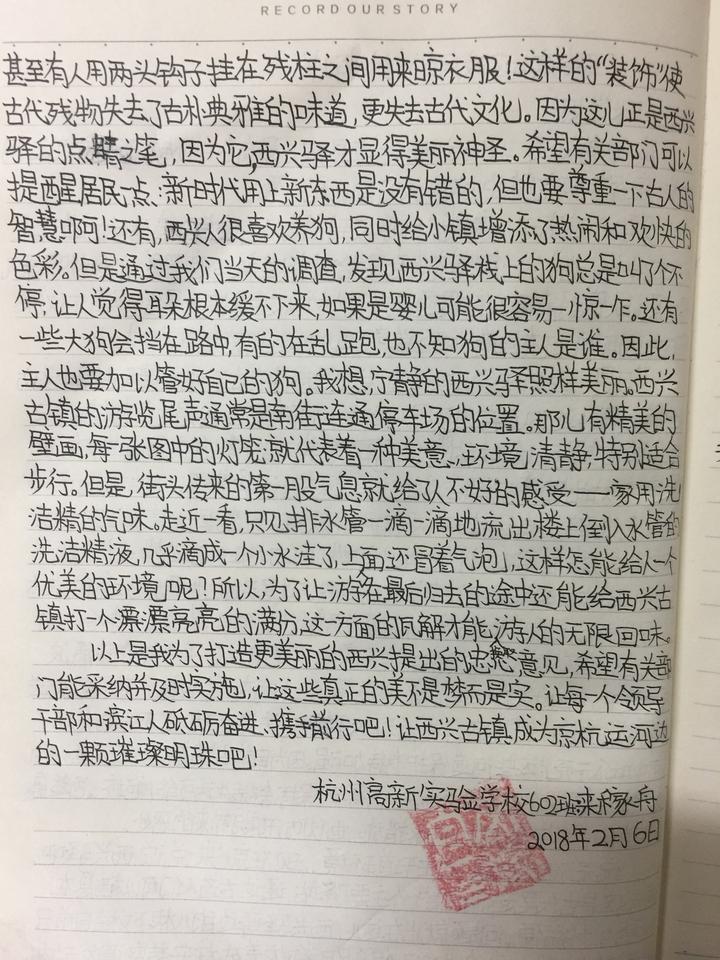 RECORD OUR STORY
甚至有人用两头钩子挂在残柱之间用来晾衣服！这样的“装饰”使
古代残物失去了古朴典雅的味道，更失去古代文化。因为这儿正是西兴
驿的点睛之笔，因为它，西兴驿才显得美丽神圣。希望有关部门可以
提醒居民一点：新时代用上新东西是没有错的，但也要尊重一下古人的
智慧啊！还有，西兴人很喜欢养狗，同时给小镇增添了热闹和欢快的
色彩。但是通过我们当天的调查，发现西兴驿栈上的狗总是叫个不
停，让人觉得耳朵根本缓不下来，如果是婴儿可能很容易一惊一乍。还有
一些大狗会挡在路中，有的在乱跑，也不知狗的主人是谁。因此，
主人也要加以管好自己的狗。我想，宁静的西兴驿照样美丽。西兴
古镇的游览尾声通常是南街连通停车场的位置。那儿有精美的
壁画，每一张图中的灯笼就代表着一种美意，环境清静，特别适合
步行。但是，街头传来的第一股气息就给了人不好的感受——家用洗
洁精的气味。走近一看，只见排水管一滴一滴地流出楼上倒入水管的
洗洁精液，几乎滴成一个小水洼了，上面还冒着气泡，这样怎能给人一个
优美的环境呢？所以，为了让游客在最后归去的途中还能给西兴古
镇打一个漂漂亮亮的满分，这一方面的瓦解才能令游人的无限回味。
以上是我为了打造更美丽的西兴提出的忠恳意见，希望有关部
门能采纳并及时实施，让这些真正的美不是梦而是实。让每一个领导
干部和滨江人砥砺奋进、携手前行吧！让西兴古镇成为京杭运河边
的一颗璀璨明珠吧！
杭州高新实验学校602班来稼舟
2018年2月6日